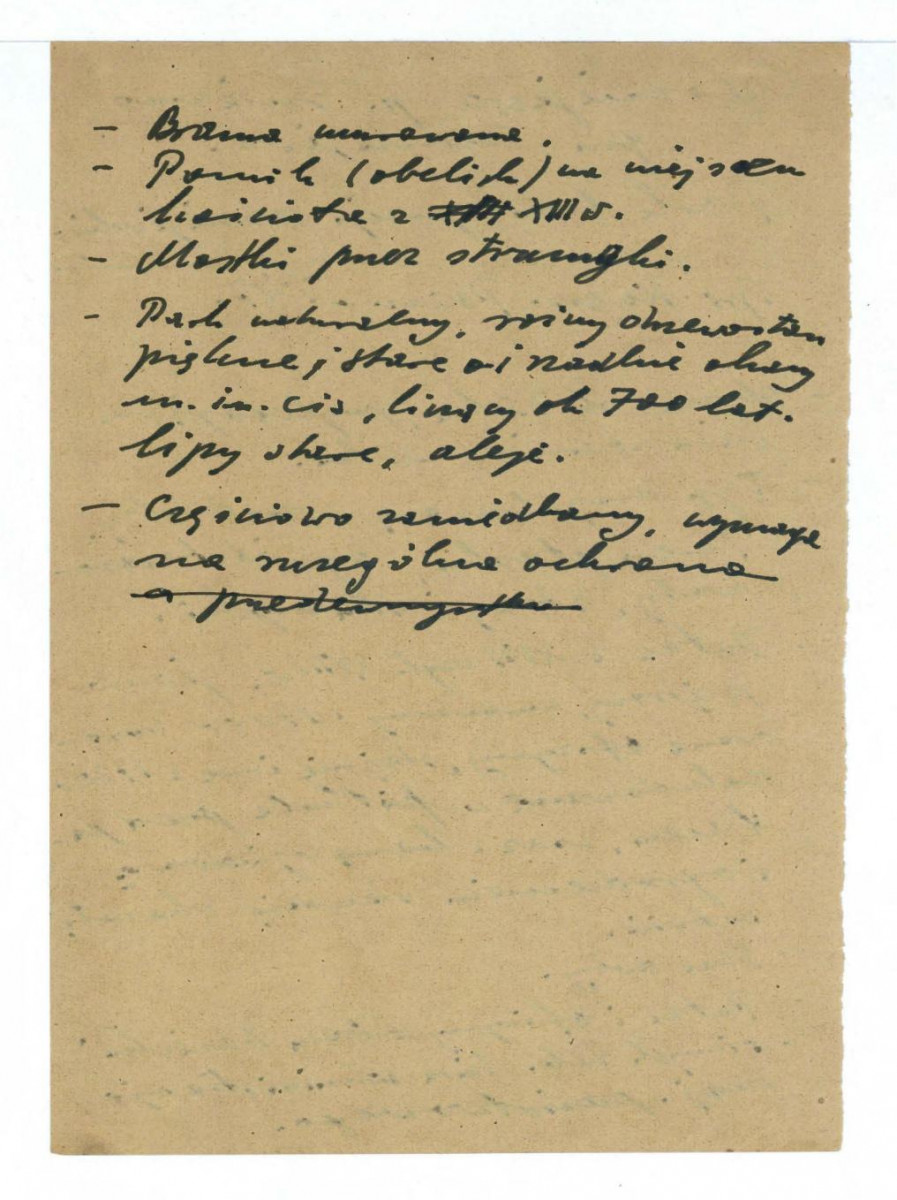 - Brama murowana.
- Pomnik (obelisk) na miejscu
kościoła z XIII w.
- Mostki przez strumyki.
- Park naturalny, różny drzewostan
piękne, stare i rzadkie okazy
m. in. cis, liczący ok 700 lat.
lipy stare, aleje.
- Częściowo zaniedbany, wymaga
na szczególna ochrona
a przedewszystkim